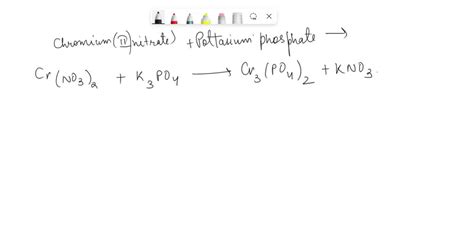 Chromium (II) nitrate) + Pottasium phosphate →
Cr(NO₃)₂ + K₃PO₄ → Cr₃(PO₄)₂ + KNO₃.